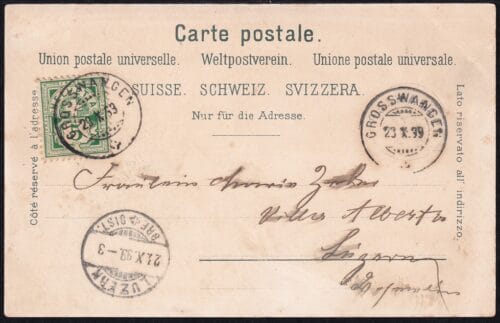 Carte postale.
Union postale universelle. Weltpostverein. Unione postale universale.
SUISSE. SCHWEIZ. SVIZZERA.
Nur für die Adresse.
Côté réservé à l'adresse.
Lato riservato all'indirizzo.
GROSSWANGEN
23 X 99
GROSSWANGEN
23. X. 99
Fräulein Marie
Villa Alberta
Luzern
LUZERN BRF. DIST.
X. 99. - 3